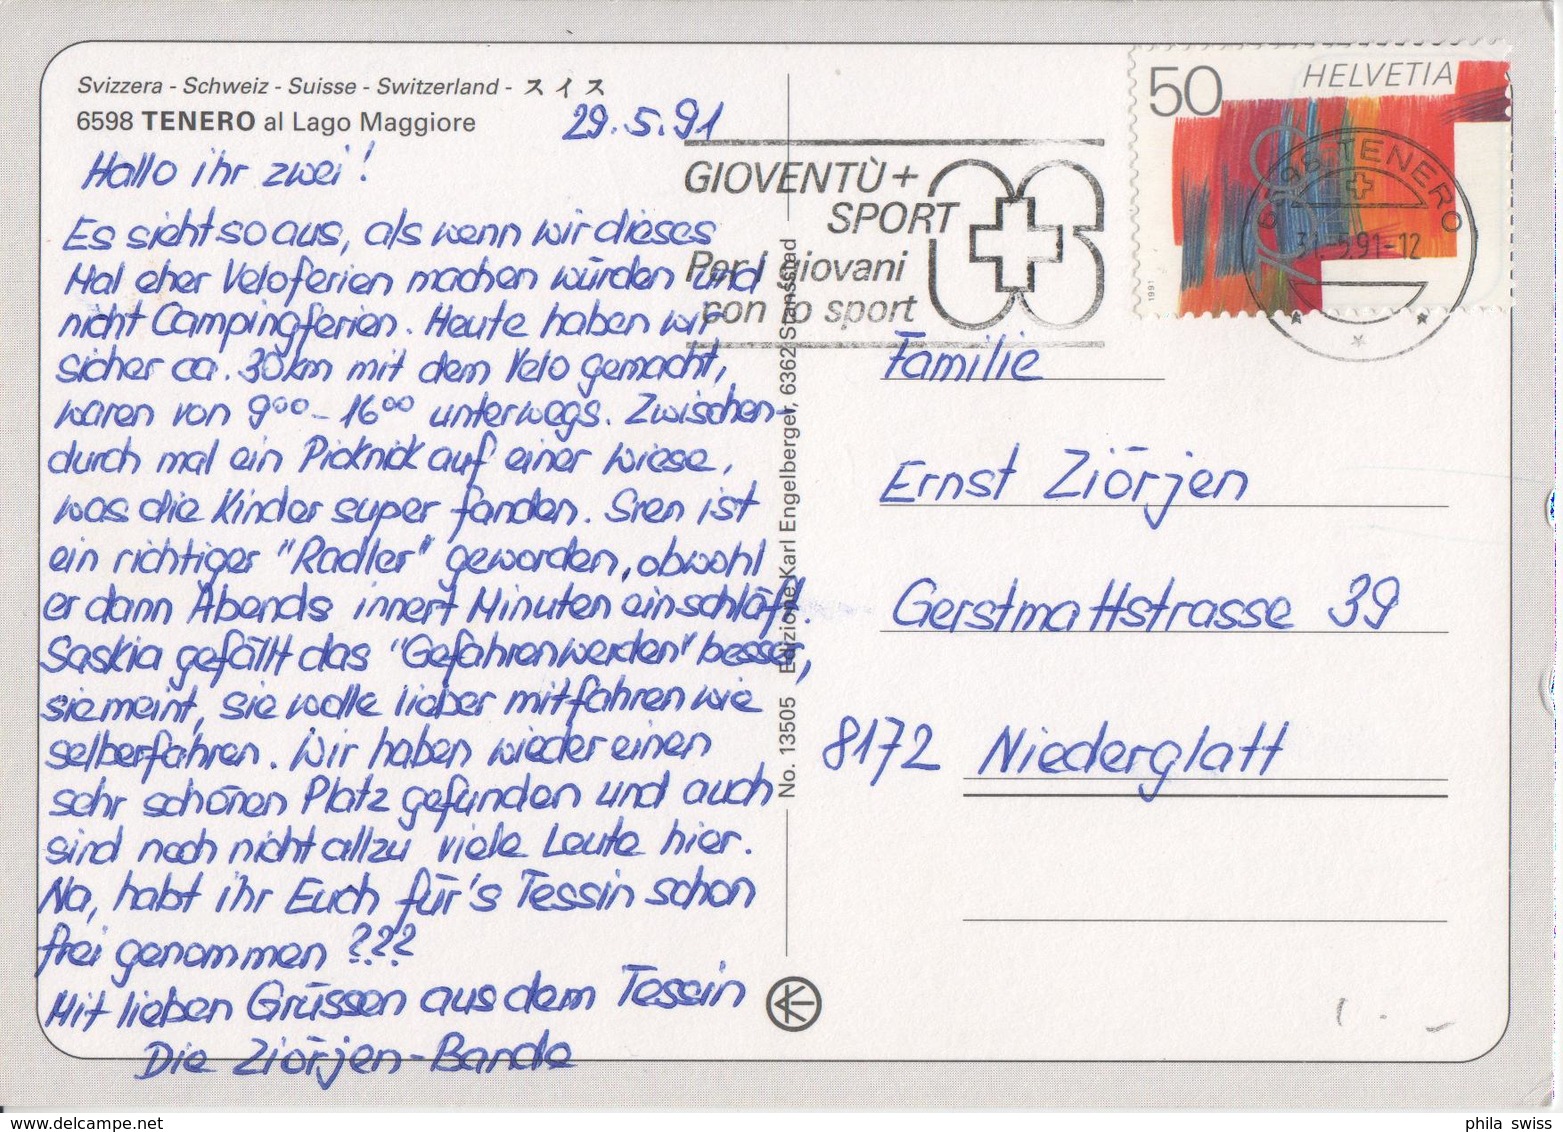 Svizzera - Schweiz - Suisse - Switzerland - スイス
6598 TENERO al Lago Maggiore
29.5.91
Hallo ihr zwei!
Es sieht so aus, als wenn wir dieses
Mal eher Veloferien machen würden und
nicht Campingferien. Heute haben wir
sicher ca. 30km mit dem Velo gemacht,
waren von 9⁰⁰-16⁰⁰ unterwegs. Zwischen-
durch mal ein Picknick auf einer Wiese,
was die Kinder super fanden. Sven ist
ein richtiger "Radler" geworden, obwohl
er dann Abends innert Minuten einschläft.
Saskia gefällt das "Gefahrenwerden" besser,
sie meint, sie wolle lieber mitfahren wie
selberfahren. Wir haben wieder einen
sehr schönen Platz gefunden und auch
sind noch nicht allzu viele Leute hier.
Na, habt ihr Euch für's Tessin schon
frei genommen ???
Mit lieben Grüssen aus dem Tessin
Die Ziörjen-Bande
No. 13505 Edizione Karl Engelberger, 6362 Stansstad
GIOVENTÙ+
SPORT
Per i giovani
con lo sport
50 HELVETIA
700
1991
6598 TENERO
31.5.91-12
Familie
Ernst Ziörjen
Gerstmattstrasse 39
8172 Niederglatt
phila swiss